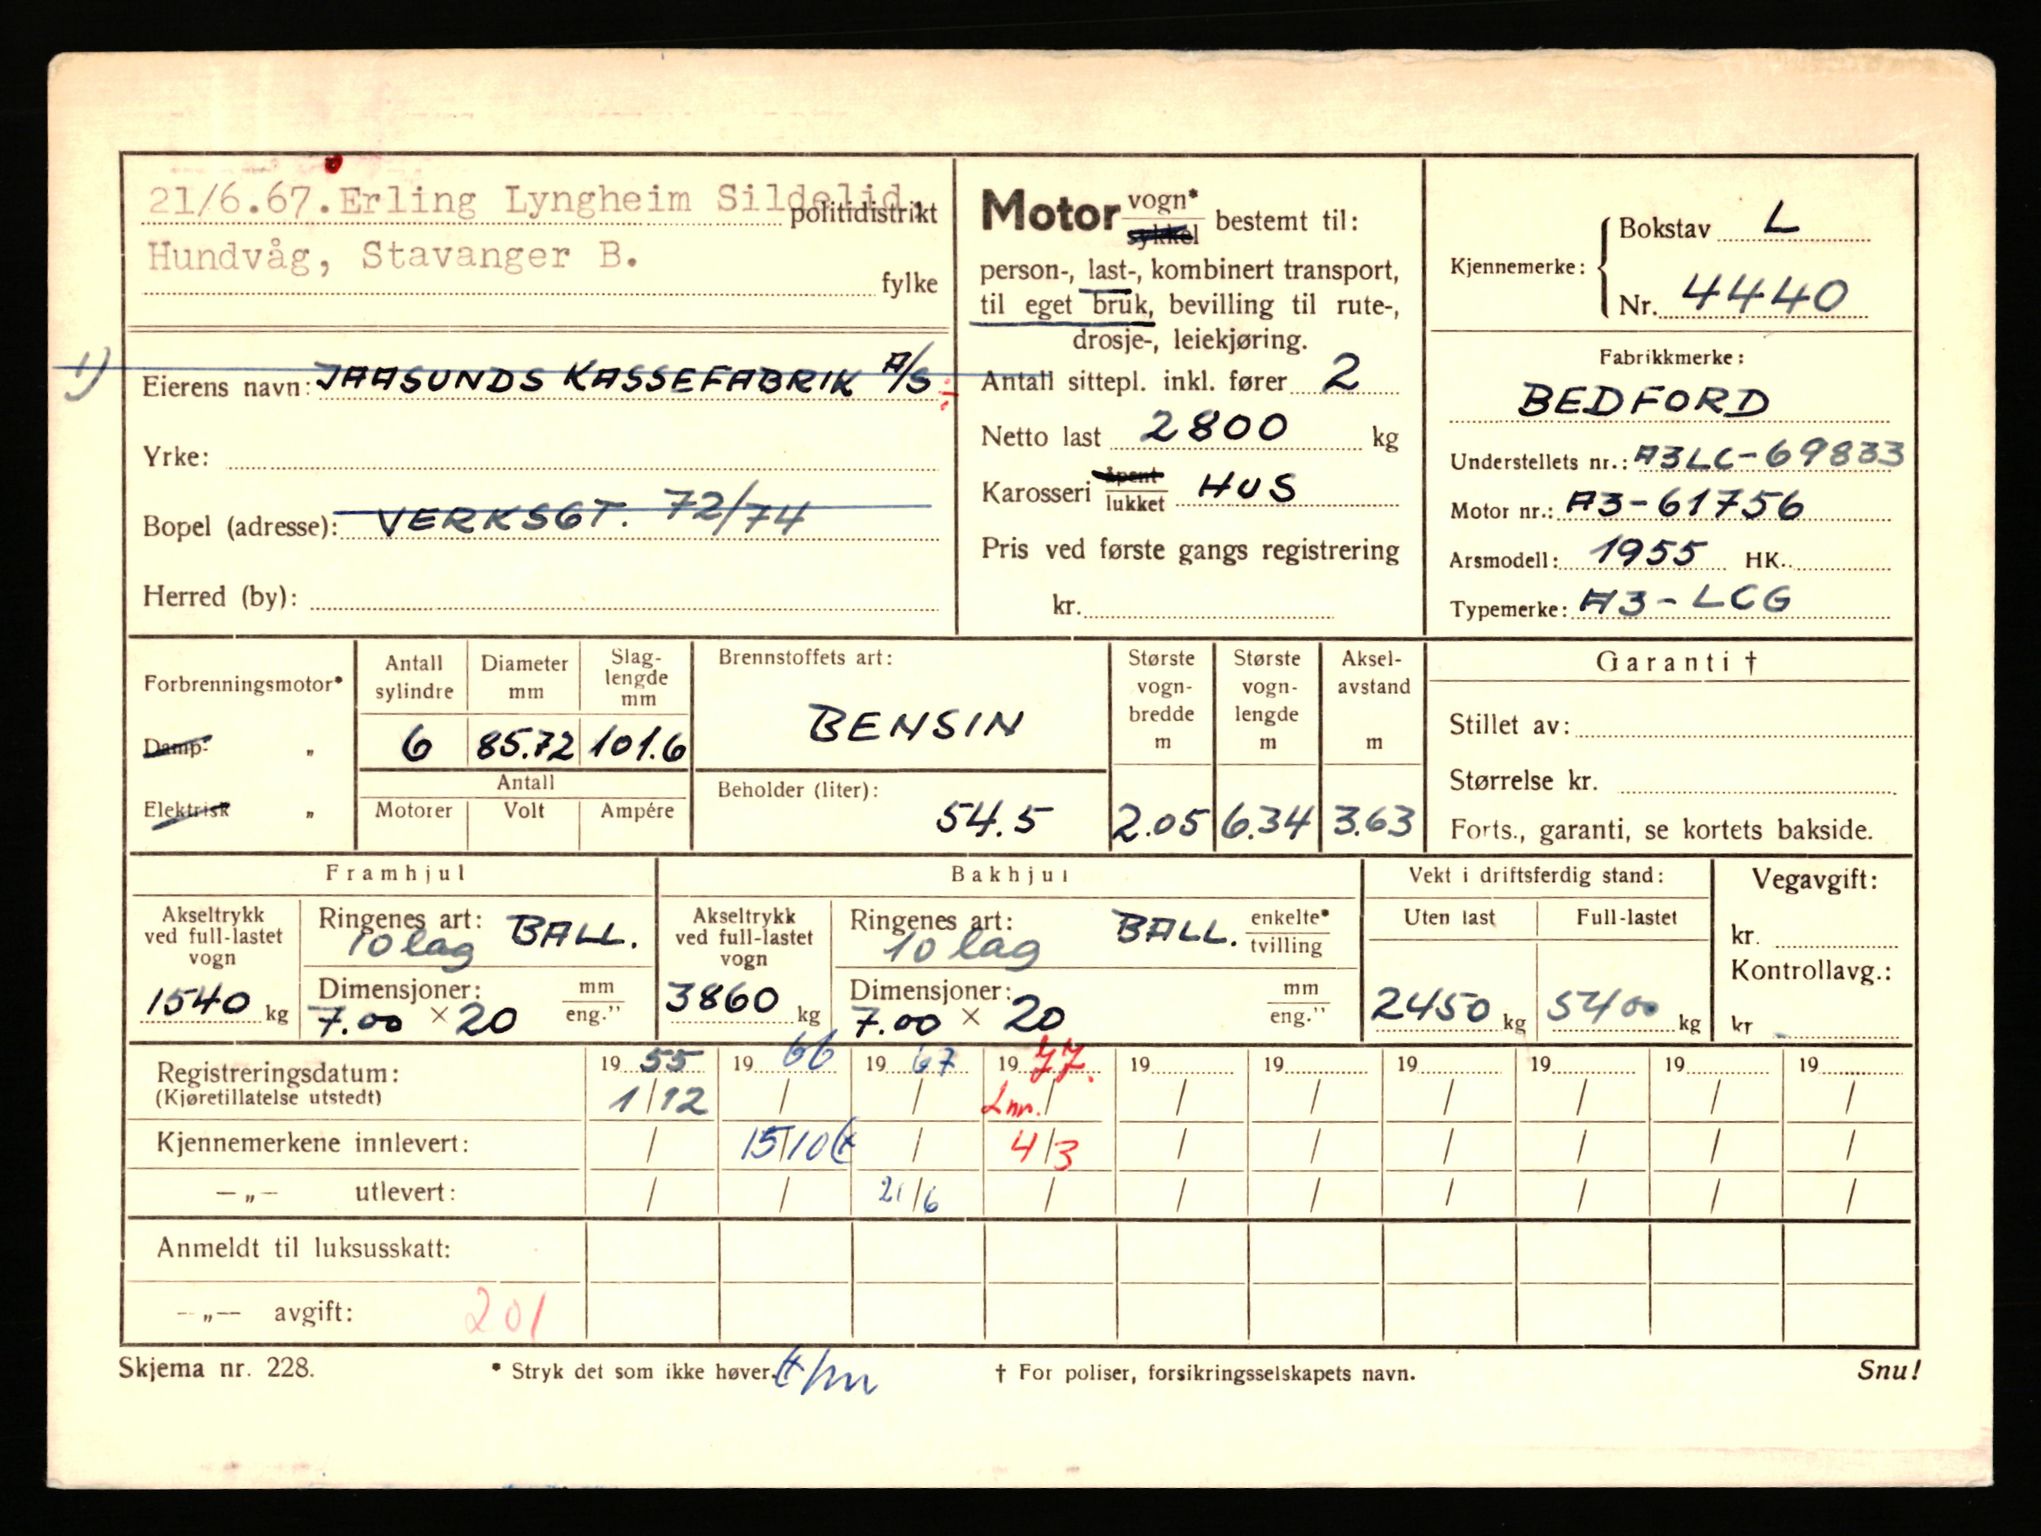 21/6.67. Erling Lyngheim Sildelid.
politidistrikt
Hundvåg, Stavanger B.
fylke
1) Eierens navn: JAASUNDS KASSEFABRIK A/S
Yrke:
Bopel (adresse): VERKSGT. 72/74
Herred (by):
Motor vogn* sykkel bestemt til:
person-, last-, kombinert transport,
til eget bruk, bevilling til rute-,
drosje-, leiekjøring.
Antall sittepl. inkl. fører 2
Netto last 2800 kg
Karosseri åpent lukket HUS
Pris ved første gangs registrering
kr.
Kjennemerke: Bokstav L
Nr. 4440
Fabrikkmerke:
BEDFORD
Understellets nr.: A3LC-69833
Motor nr.: A3-61756
Arsmodell: 1955 HK.
Typemerke: A3-LCG
Forbrenningsmotor*
Damp- "
Elektrisk "
Antall sylindre
6
Diameter mm
85.72
Slag-lengde mm
101.6
Antall
Motorer Volt Ampére
Brennstoffets art:
BENSIN
Beholder (liter):
54.5
Største vogn-bredde m
2.05
Største vogn-lengde m
6.34
Aksel-avstand m
3.63
Garanti †
Stillet av:
Størrelse kr.
Forts., garanti, se kortets bakside.
Framhjul
Akseltrykk ved full-lastet vogn
1540 kg
Ringenes art: BALL.
10 lag
Dimensjoner: mm eng."
7.00 × 20
Bakhjul
Akseltrykk ved full-lastet vogn
3860 kg
Ringenes art: BALL. enkelte* tvilling
10 lag
Dimensjoner: mm eng."
7.00 × 20
Vekt i driftsferdig stand:
Uten last Full-lastet
2450 kg 5400 kg
Vegavgift:
kr.
Kontrollavg.:
kr
Registreringsdatum: 19 55 19 66 19 67 19 77. 19 19 19 19 19
(Kjøretillatelse utstedt) 1/12 / / Lnr. / / / / / /
Kjennemerkene innlevert: / 15/10 / 4/3 / / / / /
—„— utlevert: / / 21/6 / / / / / /
Anmeldt til luksusskatt:
—„— avgift: 201
Skjema nr. 228. * Stryk det som ikke høver. † For poliser, forsikringsselskapets navn. Snu!